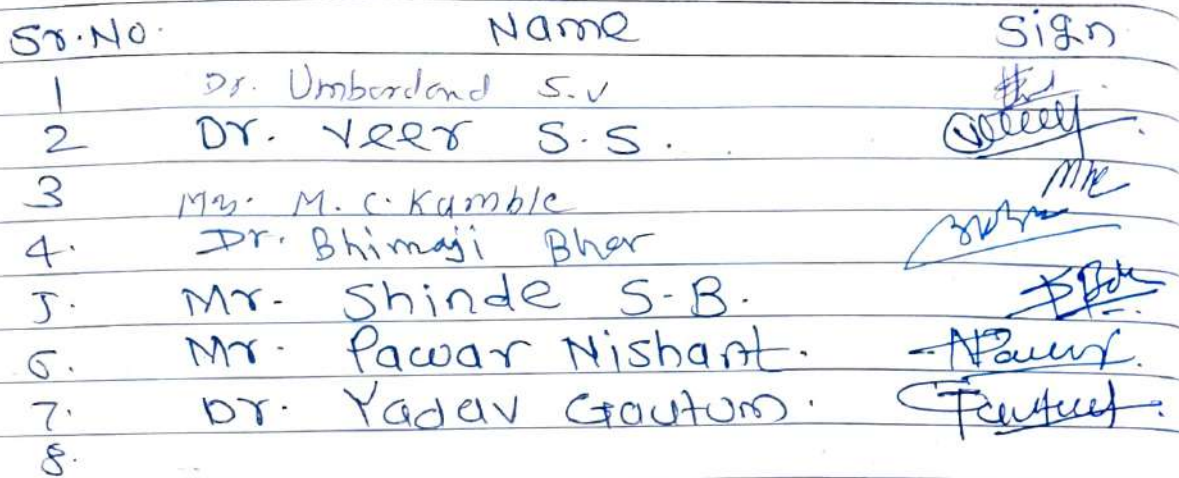 Sr.No. Name Sign
1 Dr. Umbardand S.V
2 Dr. Veer S.S.
3 Mr. M.C. Kamble
4. Dr. Bhimaji Bhor
5. Mr. Shinde S.B.
6. Mr. Pawar Nishant.
7. Dr. Yadav Gautum.
8.